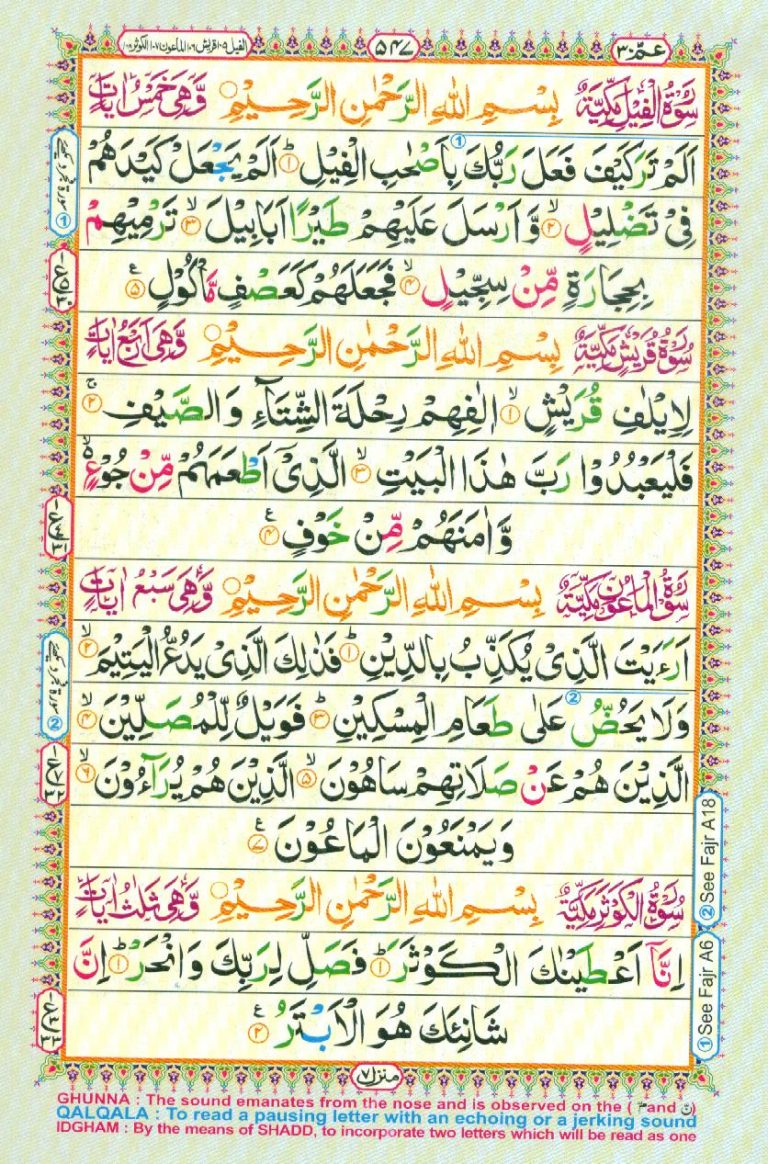 عـمّ ٣٠
٥٤٧
الفيل ١٠٥ قريش ١٠٦ الماعون ١٠٧ الكوثر ١٠٨
سُوْرَةُ الْفِيْلِ مَكِّيَّةٌ بِسْمِ اللهِ الرَّحْمٰنِ الرَّحِيْمِ ○ وَّهِىَ خَمْسُ اٰيَاتٍ
اَلَمْ تَرَ كَيْفَ فَعَلَ رَبُّكَ بِاَصْحٰبِ الْفِيْلِ ؕ ١ اَلَمْ يَجْعَلْ كَيْدَهُمْ
فِىْ تَضْلِيْلٍ ۙ ٢ وَّ اَرْسَلَ عَلَيْهِمْ طَيْرًا اَبَابِيْلَ ۙ ٣ تَرْمِيْهِمْ
بِحِجَارَةٍ مِّنْ سِجِّيْلٍ ۙ ٤ فَجَعَلَهُمْ كَعَصْفٍ مَّاْكُوْلٍ ٥ ع
سُوْرَةُ قُرَيْشٍ مَكِّيَّةٌ بِسْمِ اللهِ الرَّحْمٰنِ الرَّحِيْمِ ○ وَّهِىَ اَرْبَعُ اٰيَاتٍ
لِاِيْلٰفِ قُرَيْشٍ ۙ ١ اٖلٰفِهِمْ رِحْلَةَ الشِّتَآءِ وَ الصَّيْفِ ۚ ٢
فَلْيَعْبُدُوْا رَبَّ هٰذَا الْبَيْتِ ۙ ٣ الَّذِىْۤ اَطْعَمَهُمْ مِّنْ جُوْعٍ ۙ
وَّاٰمَنَهُمْ مِّنْ خَوْفٍ ٤ ع
سُوْرَةُ الْمَاعُوْنِ مَكِّيَّةٌ بِسْمِ اللهِ الرَّحْمٰنِ الرَّحِيْمِ ○ وَّهِىَ سَبْعُ اٰيَاتٍ
اَرَءَيْتَ الَّذِىْ يُكَذِّبُ بِالدِّيْنِ ؕ ١ فَذٰلِكَ الَّذِىْ يَدُعُّ الْيَتِيْمَ ۙ ٢
وَلَا يَحُضُّ عَلٰى طَعَامِ الْمِسْكِيْنِ ؕ ٣ فَوَيْلٌ لِّلْمُصَلِّيْنَ ۙ ٤
الَّذِيْنَ هُمْ عَنْ صَلَاتِهِمْ سَاهُوْنَ ۙ ٥ الَّذِيْنَ هُمْ يُرَآءُوْنَ ۙ ٦
وَيَمْنَعُوْنَ الْمَاعُوْنَ ٧ ع
سُوْرَةُ الْكَوْثَرِ مَكِّيَّةٌ بِسْمِ اللهِ الرَّحْمٰنِ الرَّحِيْمِ ○ وَّهِىَ ثَلٰثُ اٰيَاتٍ
اِنَّاۤ اَعْطَيْنٰكَ الْكَوْثَرَ ؕ ١ فَصَلِّ لِرَبِّكَ وَانْحَرْ ؕ ٢ اِنَّ
شَانِئَكَ هُوَ الْاَبْتَرُ ٣ ع
منزل ٧
② See Fajr A18
① See Fajr A6
GHUNNA : The sound emanates from the nose and is observed on the ( مّ and نّ)
QALQALA : To read a pausing letter with an echoing or a jerking sound
IDGHAM : By the means of SHADD, to incorporate two letters which will be read as one